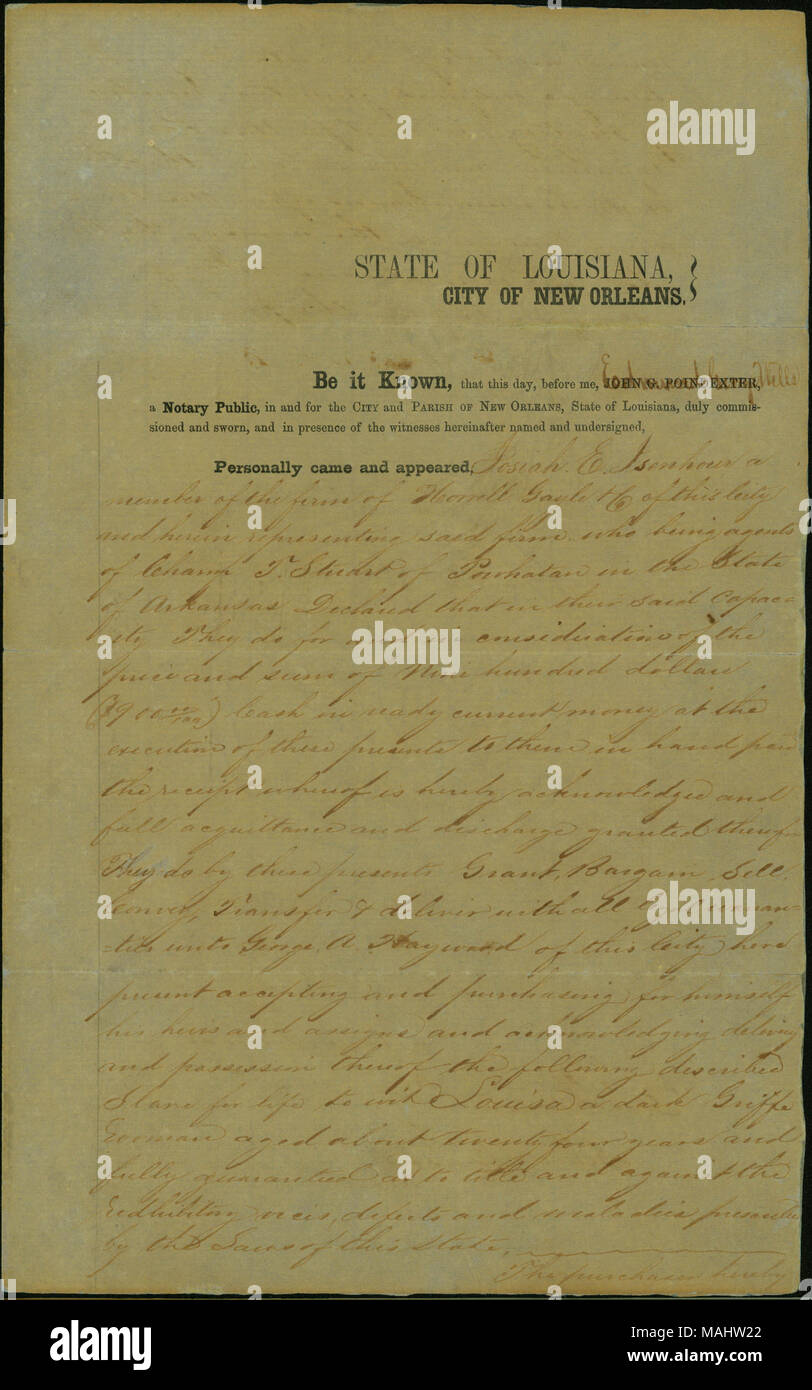 STATE OF LOUISIANA, }
CITY OF NEW ORLEANS.
Be it Known, that this day, before me, JOHN G. POINDEXTER,
a Notary Public, in and for the CITY and PARISH OF NEW ORLEANS, State of Louisiana, duly commis-
sioned and sworn, and in presence of the witnesses hereinafter named and undersigned,
Personally came and appeared, Josiah E. Isenhour a
member of the firm of Horrell Gayle & Co of this City
and herein representing said firm who being agents
of T. Stuart of Powhatan in the State
of Arkansas Declared that in their said Capac-
ity They do for and in consideration of the
price and sum of Nine hundred dollars
($900 00/100) Cash in ready current money at the
execution of these presents to them in hand paid
the receipt whereof is hereby acknowledged and
full acquittance and discharge granted therefor
They do by these presents Grant, Bargain Sell
Convey, Transfer & deliver with all legal warran-
=ties unto George A. Hayward of this City here
present accepting and purchasing for himself
his heirs and assigns and acknowledging delivery
and possession thereof the following described
Slave for life to wit Louisa a dark Griffe
woman aged about twenty four years and
fully guarantied as to title and against the
redhibitory vices, defects and maladies prescribed
by the Laws of this State.
The purchaser hereby
alamy
Image ID: MAHW22
www.alamy.com